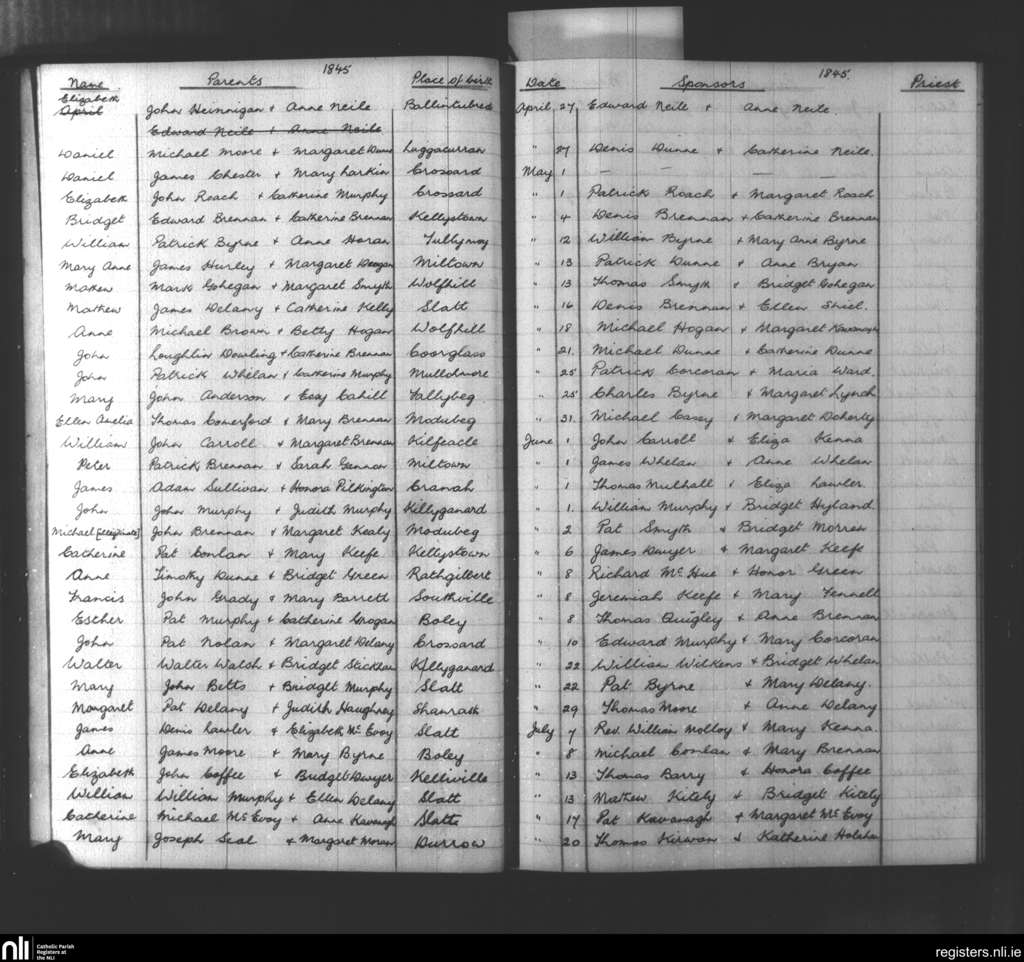 1845 1845
Name Parents Place of birth Date Sponsors Priest
Elizabeth
April John Hennigan & Anne Neile Ballintubred April 27 Edward Neile & Anne Neile
Edward Neile & Anne Neile
Daniel Michael Moore & Margaret Dunne Luggacurran " 27 Denis Dunne & Catherine Neile.
Daniel James Chester & Mary Larkin Crossard May 1 — — — —
Elizabeth John Roach & Catherine Murphy Crossard " 1 Patrick Roach & Margaret Roach
Bridget Edward Brennan & Catherine Brennan Kellystown " 4 Denis Brennan & Catherine Brennan
William Patrick Byrne & Anne Horan Tullymoy " 12 William Byrne & Mary Anne Byrne
Mary Anne James Hurley & Margaret Deegan Miltown " 13 Patrick Dunne & Anne Bryan
Mathew Mark Gohegan & Margaret Smyth Wolfhill " 13 Thomas Smyth & Bridget Gohegan
Mathew James Delany & Catherine Kelly Slatt " 16 Denis Brennan & Ellen Shiel.
Anne Michael Brown & Betty Hogan Wolfhill " 18 Michael Hogan & Margaret Kavanagh
John Loughlin Dowling & Catherine Brennan Coorglass " 21. Michael Dunne & Catherine Dunne
John Patrick Whelan & Catherine Murphy Mulldmore " 25 Patrick Corcoran & Maria Ward.
Mary John Anderson & Cahill Tallybeg " 25 Charles Byrne & Margaret Lynch
Ellen Amelia Thomas Comerford & Mary Brennan Modubeg " 31. Michael Casey & Margaret Doherty
William John Carroll & Margaret Brennan Kilfeacle June 1 John Carroll & Eliza Kenna
Peter Patrick Brennan & Sarah Gannon Miltown " 1 James Whelan & Anne Whelan
James Adam Sullivan & Honora Pilkington Cranah " 1 Thomas Mulhall & Eliza Lawler.
John John Murphy & Judith Murphy Killyganard " 1. William Murphy & Bridget Hyland.
Michael [illegitimate] John Brennan & Margaret Kealy Modubeg " 2 Pat Smyth & Bridget Morren
Catherine Pat Conlan & Mary Keefe Kellystown " 6 James Dwyer & Margaret Keefe
Anne Timothy Dunne & Bridget Green Rathgilbert " 8 Richard Mc Hue & Honor Green
Francis John Grady & Mary Barrett Southville " 8 Jeremiah Keefe & Mary Fennell
Esther Pat Murphy & Catherine Grogan Boley " 8 Thomas Quigley & Anne Brennan
John Pat Nolan & Margaret Delany Crossard " 10 Edward Murphy & Mary Corcoran
Walter Walter Walsh & Bridget Sticklan Killyganard " 22 William Wilkens & Bridget Whelan
Mary John Betts & Bridget Murphy Slatt " 22 Pat Byrne & Mary Delany.
Margaret Pat Delany & Judith Haughney Shanrath " 29 Thomas Moore & Anne Delany
James Denis Lawler & Elizabeth Mc Evoy Slatt July 7 Rev. William Molloy & Mary Kenna.
Anne James Moore & Mary Byrne Boley " 8 Michael Conlan & Mary Brennan
Elizabeth John Coffee & Bridget Dwyer Kelliville " 13 Thomas Barry & Honora Coffee
William William Murphy & Ellen Delany Slatt " 13 Mathew Kitely & Bridget Kitely
Catherine Michael Mc Evoy & Anne Kavanagh Slatt " 17 Pat Kavanagh & Margaret Mc Evoy
Mary Joseph Seal & Margaret Moran Durrow " 20 Thomas Kirwan & Katherine Holohan
nli Catholic Parish
Registers at
the NLI
registers.nli.ie